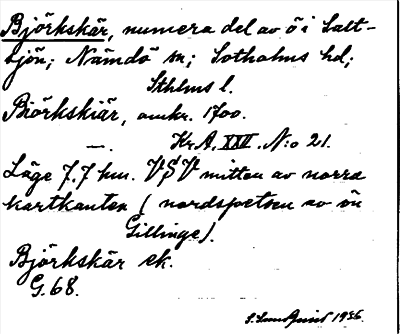 Björkskär, numera del av ö i Salt-
sjön; Nämdö sn; Sotholms hd;
Sthlms l.
Biörkskiär, omkr. 1700.
—. Kr.A. XXV. N:o 21.
Läge 7.7 km. VSV mitten av norra
kartkanten (nordspetsen av ön
Gillinge).
Björkskär ek.
G. 68.
S. Lundquist 1936.